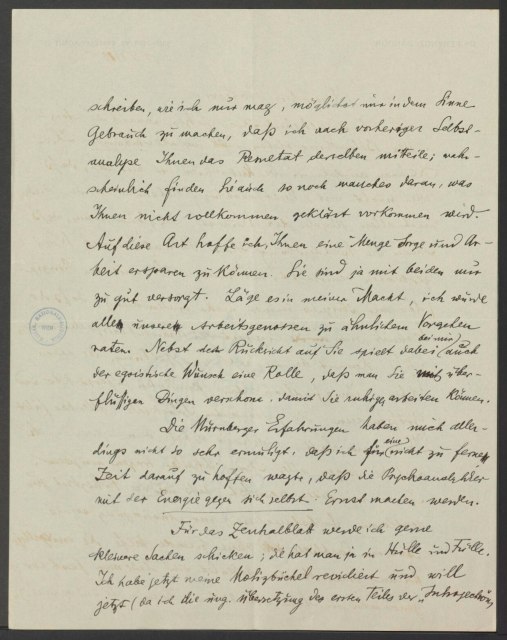 schreiben, wie ich nur mag, möglichst nur in dem Sinne
Gebrauch zu machen, daß ich nach vorheriger Selbst-
analyse Ihnen das Resultat derselben mitteile; wahr-
scheinlich finden Sie auch so noch manches daran, was
Ihnen nicht vollkommen geklärt vorkommen wird.
Auf diese Art hoffe ich, Ihnen eine Menge Sorge und Ar-
beit ersparen zu können. Sie sind ja mit beiden nur
zu gut versorgt. Läge es in meiner Macht, ich würde
allen unseren Arbeitsgenossen zu ähnlichem Vorgehen
raten. Nebst der Rücksicht auf Sie spielt dabei (bei mir) auch
der egoistische Wunsch eine Rolle, daß man Sie mit über-
flüssigen Dingen verschone, damit Sie ruhiger arbeiten können.
Die Nürnberger Erfahrungen haben mich aller-
dings nicht so sehr ermutigt, daß ich für eine nicht zu ferne
Zeit darauf zu hoffen wagte, daß die Psychoanalytiker
mit der Energie gegen sich selbst Ernst machen werden.
Für das Zentralblatt werde ich gerne
kleinere Sachen schicken; die hat man ja in Hülle und Fülle.
Ich habe jetzt meine Notizbüchel revidiert und will
jetzt (da ich die ung. Übersetzung des ersten Teiles der „Introjection